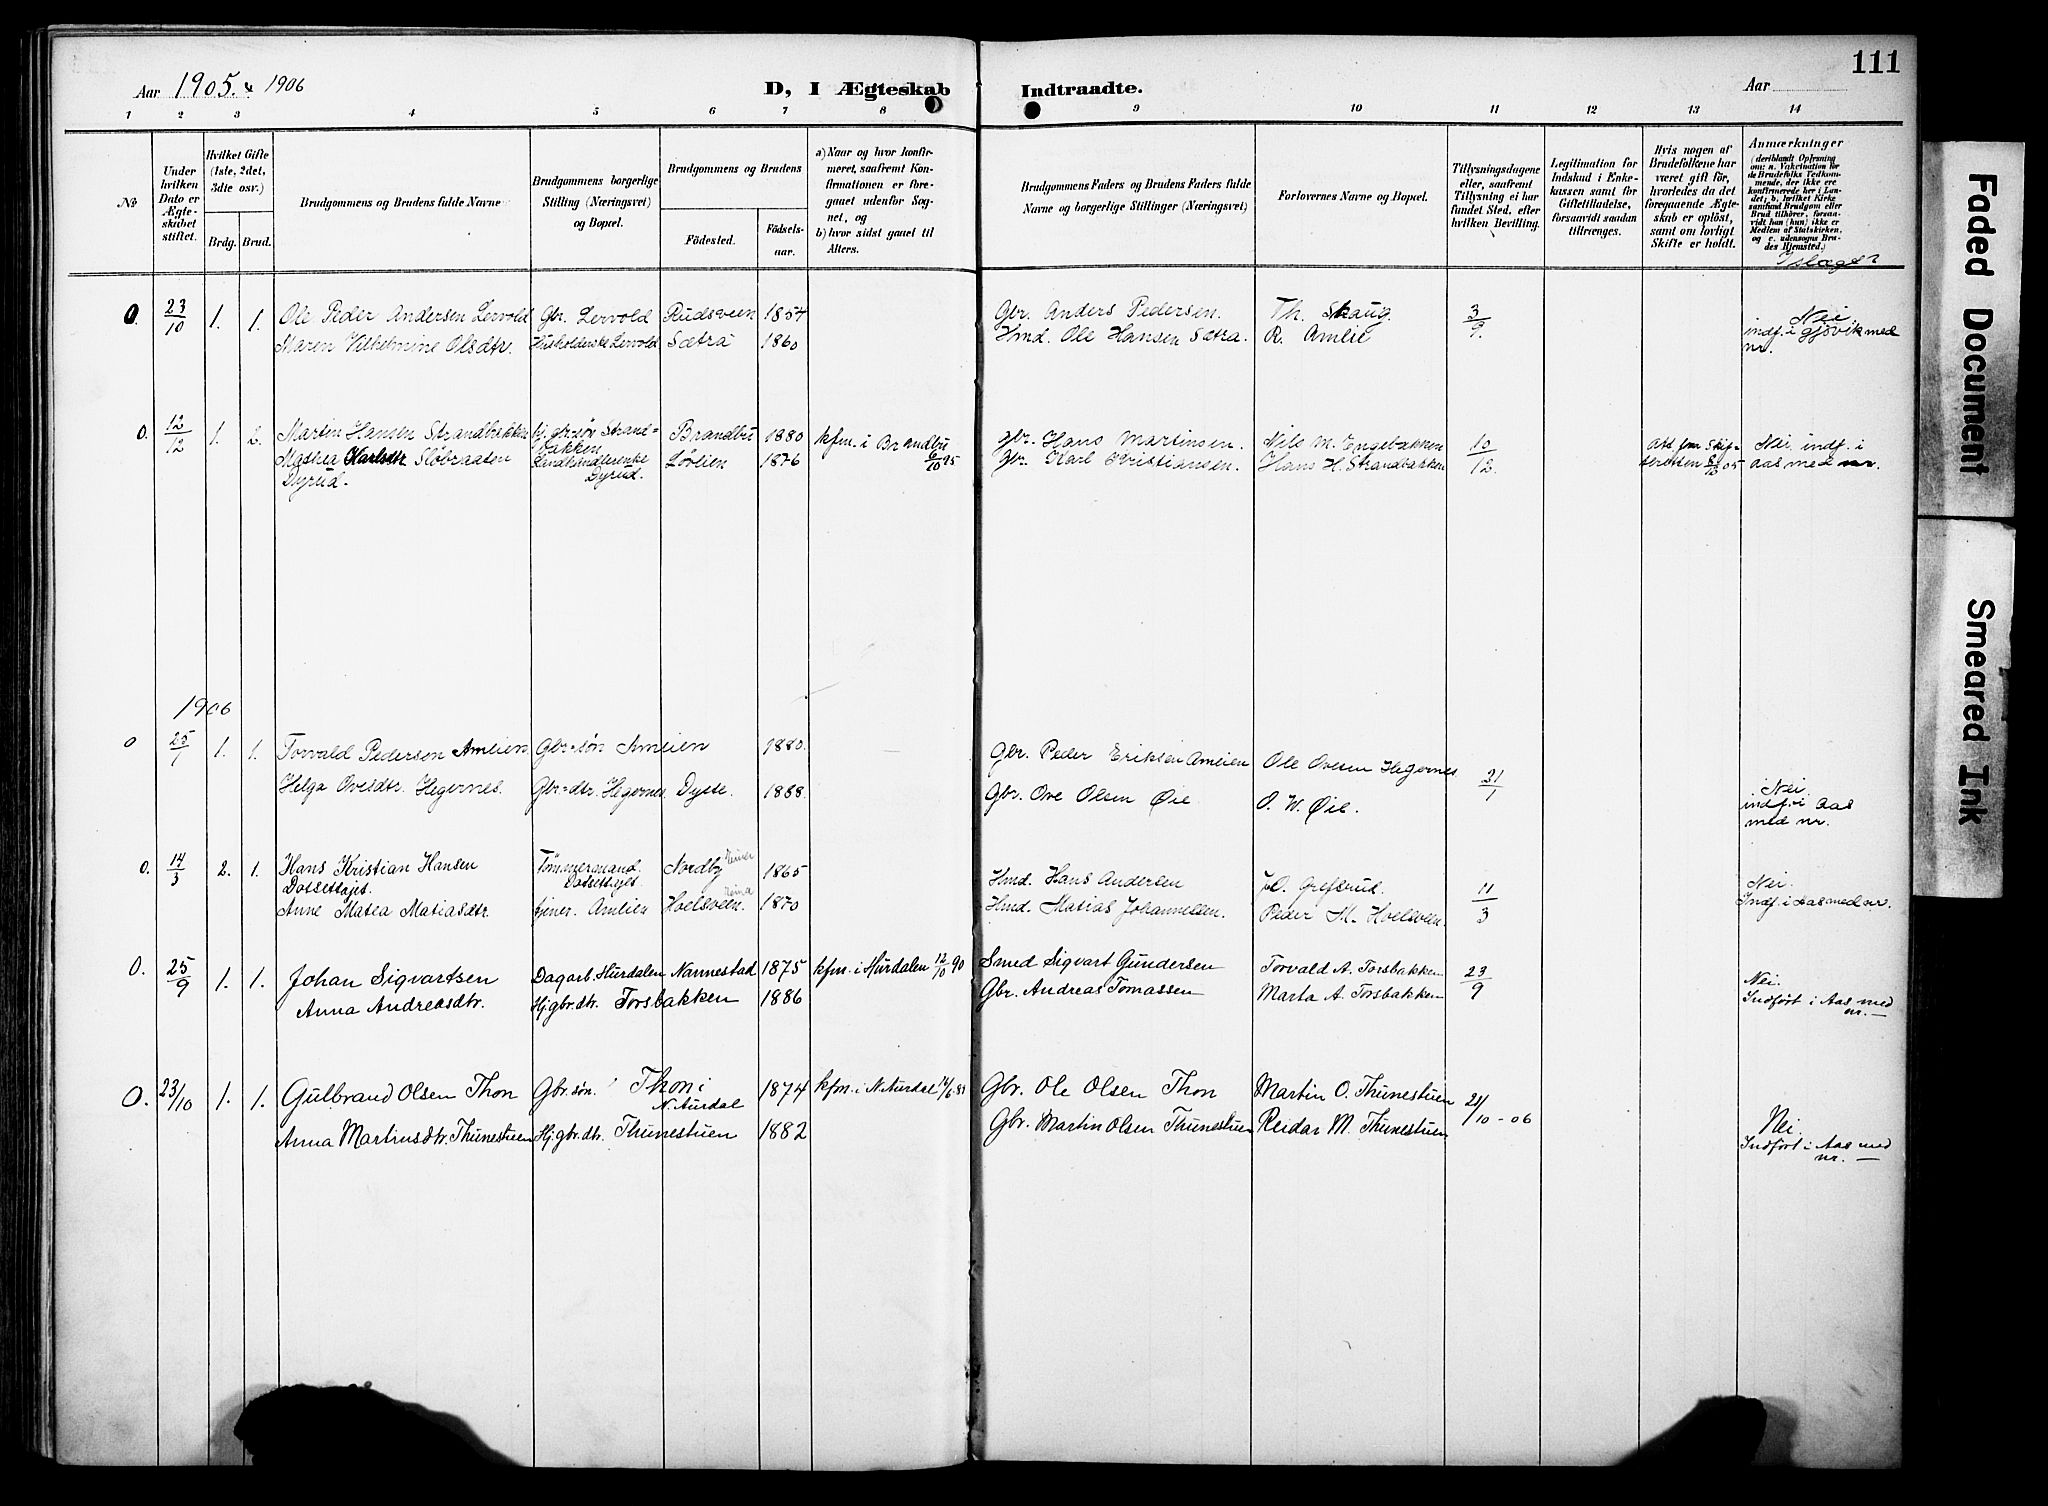 111
Aar 1905. & 1906
D, I Ægteskab Indtraadte.
Aar
1 2 3 4 5 6 7 8 9 10 11 12 13 14
No
Under hvilken Dato er Ægteskabet stiftet.
Hvilket Gifte (1ste, 2det, 3die osv.)
Brdg. Brud.
Brudgommens og Brudens fulde Navne
Brudgommens borgerlige Stilling (Næringsvei) og Bopæl.
Brudgommens og Brudens
Födested. Födsels-aar.
a) Naar og hvor konfirmeret, saafremt Konfirmationen er foregaaet udenfor Sognet, og
b) hvor sidst gaaet til Alters.
Brudgommens Faders og Brudens Faders fulde Navne og borgerlige Stillinger (Næringsvei)
Forlovernes Navne og Bopæl.
Tillysningsdagene eller, saafremt Tillysning ei har fundet Sted, efter hvilken Bevilling.
Legitimation for Indskud i Enkekassen samt for Giftetilladelse, forsaavidt saadan tiltrænges.
Hvis nogen af Brudefolkene har været gift för, hvorledes da det foregaaende Ægteskab er oplöst, samt om lovligt Skifte er holdt.
Anmærkninger (deriblandt Oplysning om: a. Vakcination for de Brudefolks Vedkommende, der ikke ere konfirmerede her i Landet; b. hvilket Kirkesamfund Brudgom eller Brud tilhörer, forsaavidt han (hun) ikke er Medlem af Statskirken, og c. udensogns Brudes Hjemsted.)
I slægt?
O. 23/10 1. 1. Ole Peder Andersen Lervold Gbr. Lervold Rudsveen 1854 Gbr. Anders Pedersen. Th. Skaug. 3/9. Nei
Maren Vilhelmine Olsdtr. Husholderske Lervold Sætra 1860 Hmd. Ole Hansen Sætra. R. Amlie indf. i Gjövik med nr.
O. 12/12 1. 2. Martin Hansen Strandbakken hj. gbr.søn Strandbakken Brandbu 1880 kfm. i Brandbu 6/10 95 gbr. Hans Martinsen. Nils M. Engebakken 10/12. Att. fra Skifteretten 8/12 05 Nei. indf. i aas med nr.
Mathea Karlsdtr Slöbraaten Dyrud. Landhandlerenke Dyrud. Lörlien 1876 gbr. Karl Kristiansen. Hans H. Strandbakken
1906
O 25/1 1. 1. Torvald Pederson Amlien Gbr-søn Amlien 1880. Gbr. Peder Eriksen Amlien Ole Ovesen Hegernes 21/1
Helga Ovesdtr. Hegernes. Gbr-dtr. Hegernes. Dyste. 1888. Gbr. Ove Olsen Øie O. W. Øie. Nei. indf. i aas med nr.
O. 14/3 2. 1. Hans Kristian Hansen Tømmermand Nordby 1865 Hmd. Hans Andersen O. Grefsrud. 11/3 Nei.
Anne Matea Matiasdtr. tjener. Amlien Hoelsveen. 1870 Hmd. Matias Johannessen. Peder M. Hoelsveen. Indf. i aas med nr.
O. 25/9 1. 1. Johan Sigvartsen Dagarb. Hurdalen Nannestad 1875 kfm. i Hurdalen 12/10 90 Smed Sigvart Gundersen Torvald A. Torsbakken 23/9 Nei.
Anna Andreasdtr. Hj. gbr. dtr. Torsbakken 1886 Gbr. Andreas Tomassen Marta A. Torsbakken Indfört i Aas med nr. —
O. 23/10 1. 1. Gulbrand Olsen Thon Gbr. søn. Thon i N. Aurdal 1874 kfm. i N. Aurdal Gbr. Ole Olsen Thon Martin O. Thunestuen 21/10 - 06
Anna Martinsdtr. Thunestuen Hj. gbr. dtr. Thunestuen 1882 Gbr. Martin Olsen Thunestuen Reidar M. Thunestuen Nei.
Indfört i Aas med nr. —
Faded Document
Smeared Ink